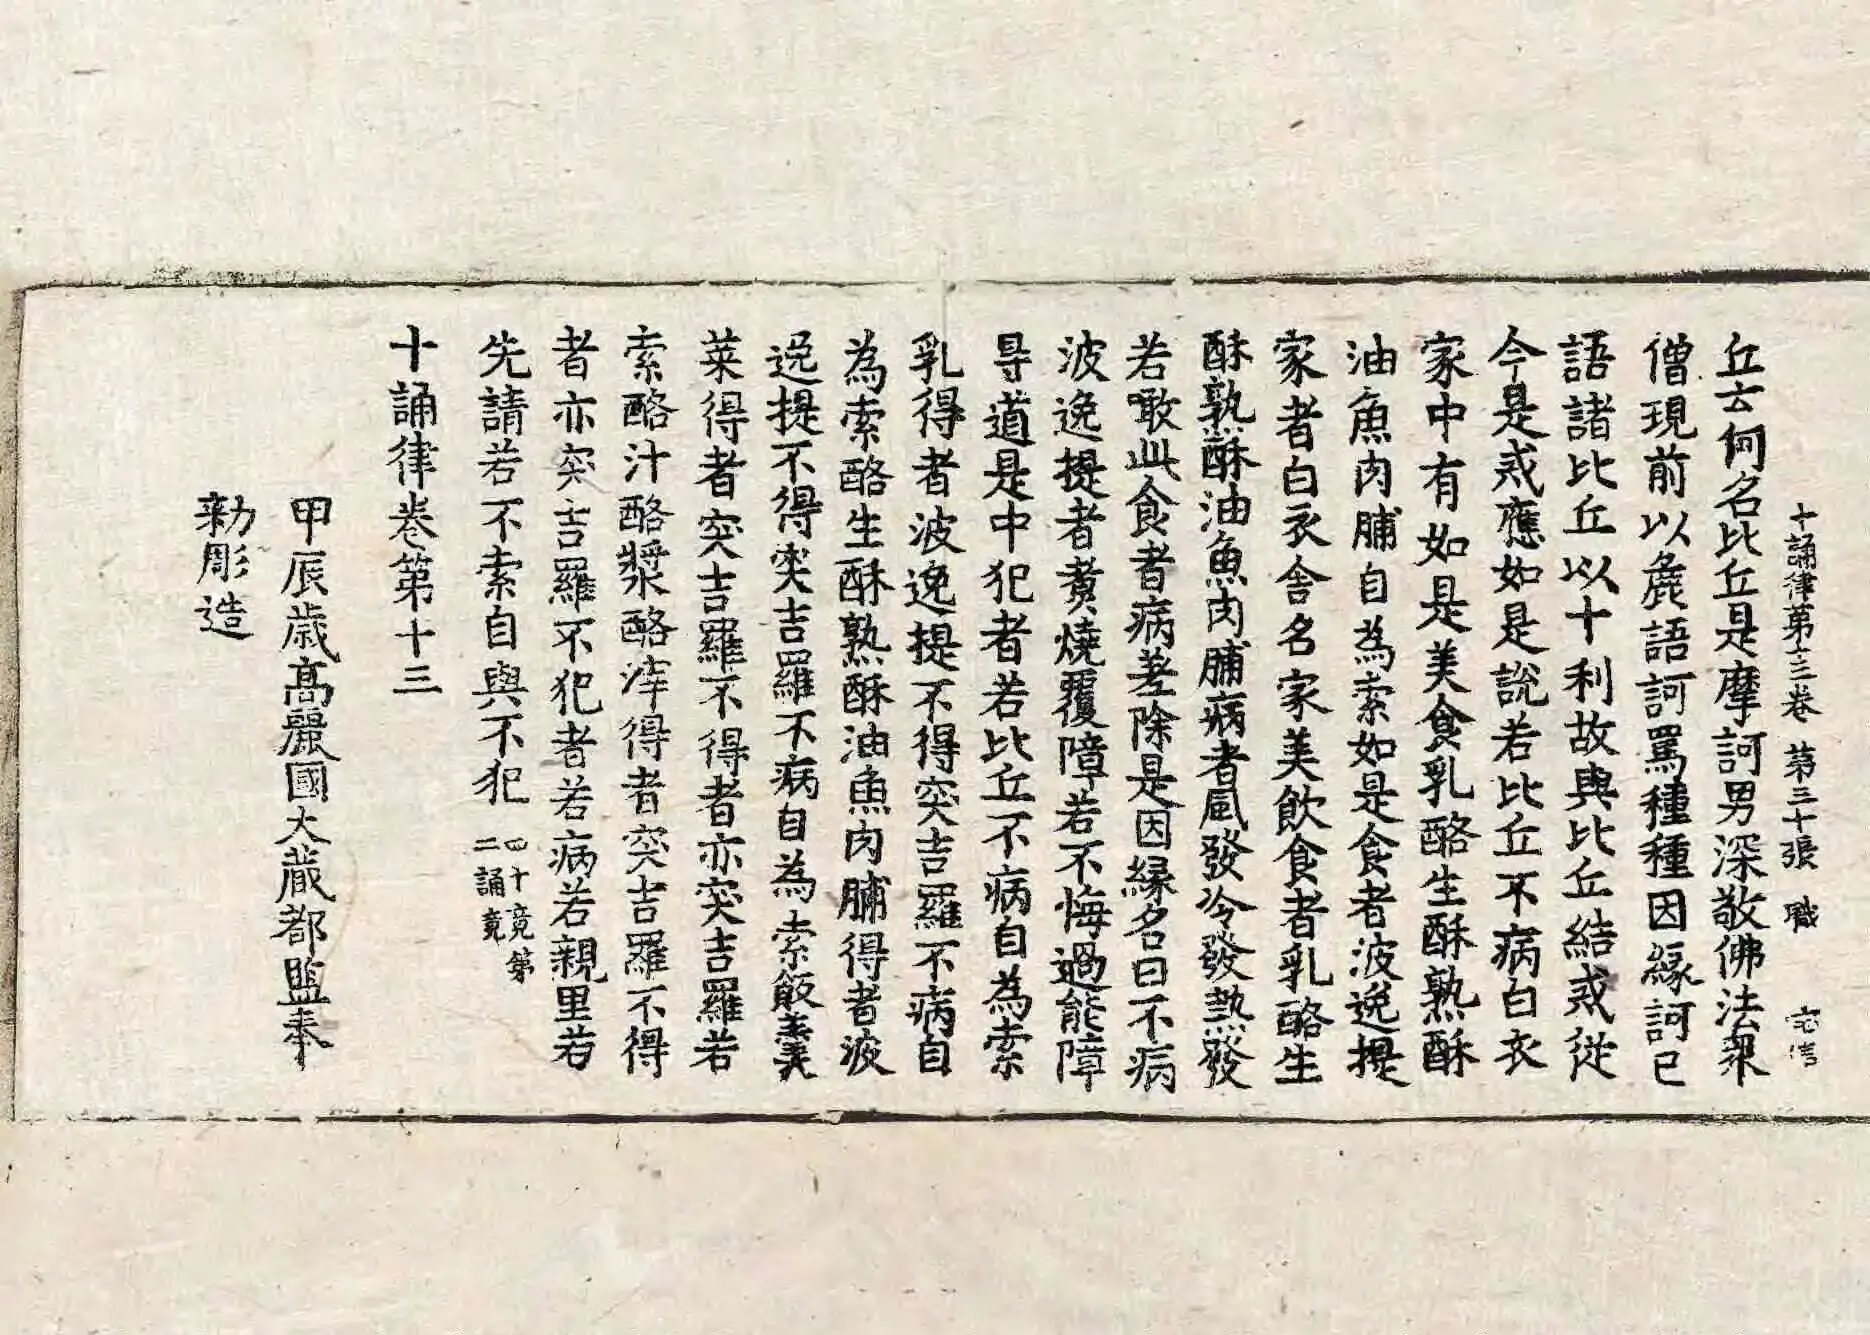 十誦律第十三卷　第三十張　職
丘云何名比丘是摩訶男深敬佛法衆
僧現前以麁語訶罵種種因緣訶已
語諸比丘以十利故與比丘結戒從
今是戒應如是說若比丘不病白衣
家中有如是美食乳酪生酥熟酥
油魚肉脯自為索如是食者波逸提
家者白衣舍名家美飲食者乳酪生
酥熟酥油魚肉脯病者風發冷發熱發
若噉此食者病差除是因緣名曰不病
波逸提者煑燒覆障若不悔過能障
㝵道是中犯者若比丘不病自為索
乳得者波逸提不得突吉羅不病自
為索酪生酥熟酥油魚肉脯得者波
逸提不得突吉羅不病自為索飯羹
菜得者突吉羅不得者亦突吉羅若
索酪汁酪漿酪滓得者突吉羅不得
者亦突吉羅不犯者若病若親里若
先請若不索自與不犯 四十竟第
二誦竟
十誦律卷第十三
甲辰歲高麗國大藏都監奉
勅彫造